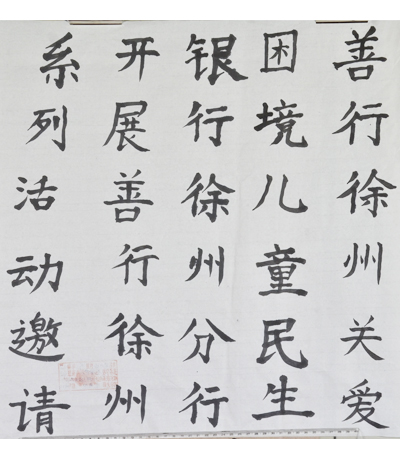 善行徐州关爱
困境儿童民生
银行徐州分行
开展善行徐州
系列活动邀请